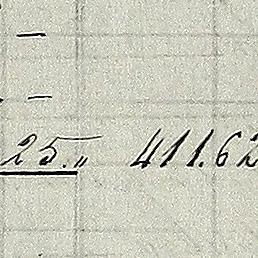 —
—
25.„ 411.62